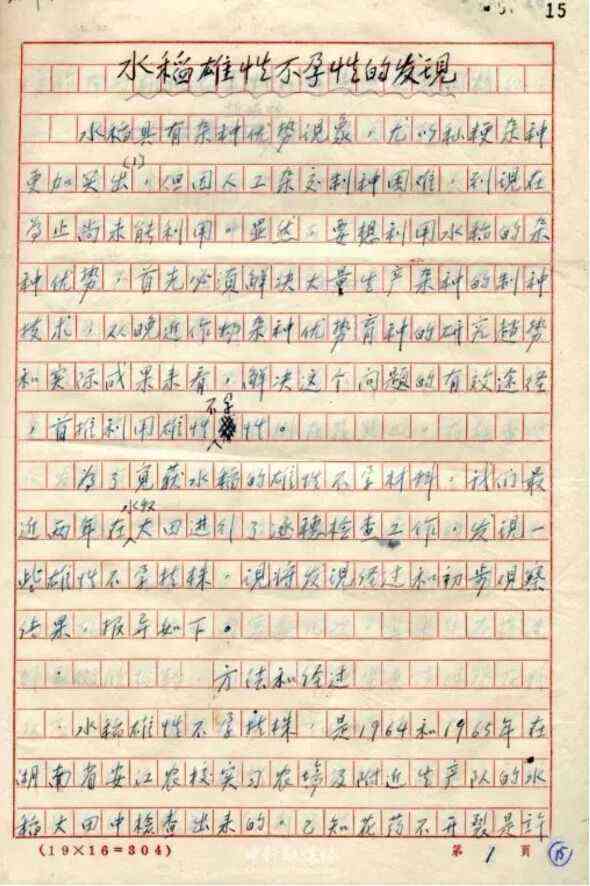 15
水稻雄性不孕性的发现
水稻具有杂种优势现象，尤以籼粳杂种
更加突出(1)，但因人工杂交制种困难，到现在
为止尚未能利用。显然，要想利用水稻的杂
种优势，首先必须解决大量生产杂种的制种
技术，从晚近作物杂种优势育种的研究趋势
和实际成果来看，解决这个问题的有效途径
，首推利用雄性不孕性。
为了觅获水稻的雄性不孕材料，我们最
近两年在水稻大田进行了逐穗检查工作，发现一
些雄性不孕植株，现将发现经过和初步观察
结果，报导如下。
方法和经过
水稻雄性不孕植株，是1964和1965年在
湖南省安江农校实习农场及附近生产队的水
稻大田中检查出来的。已知花药不开裂是许
(19×16=304)
第 1 页
15